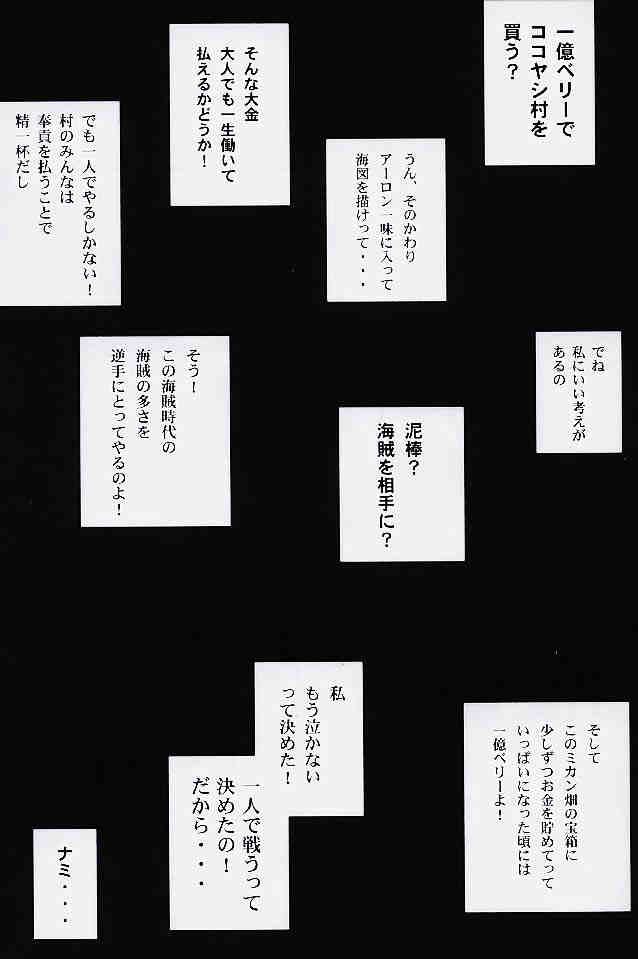 一億ベリーで
ココヤシ村を
買う？
そんな大金
大人でも一生働いて
払えるかどうか！
うん、そのかわり
アーロン一味に入って
海図を描けって・・・
でも一人でやるしかない！
村のみんなは
奉貢を払うことで
精一杯だし
でね
私にいい考えが
あるの
泥棒？
海賊を相手に？
そう！
この海賊時代の
海賊の多さを
逆手にとってやるのよ！
そして
このミカン畑の宝箱に
少しずつお金を貯めてって
いっぱいになった頃には
一億ベリーよ！
私
もう泣かない
って決めた！
一人で戦うって
決めたの！
だから・・・
ナミ・・・